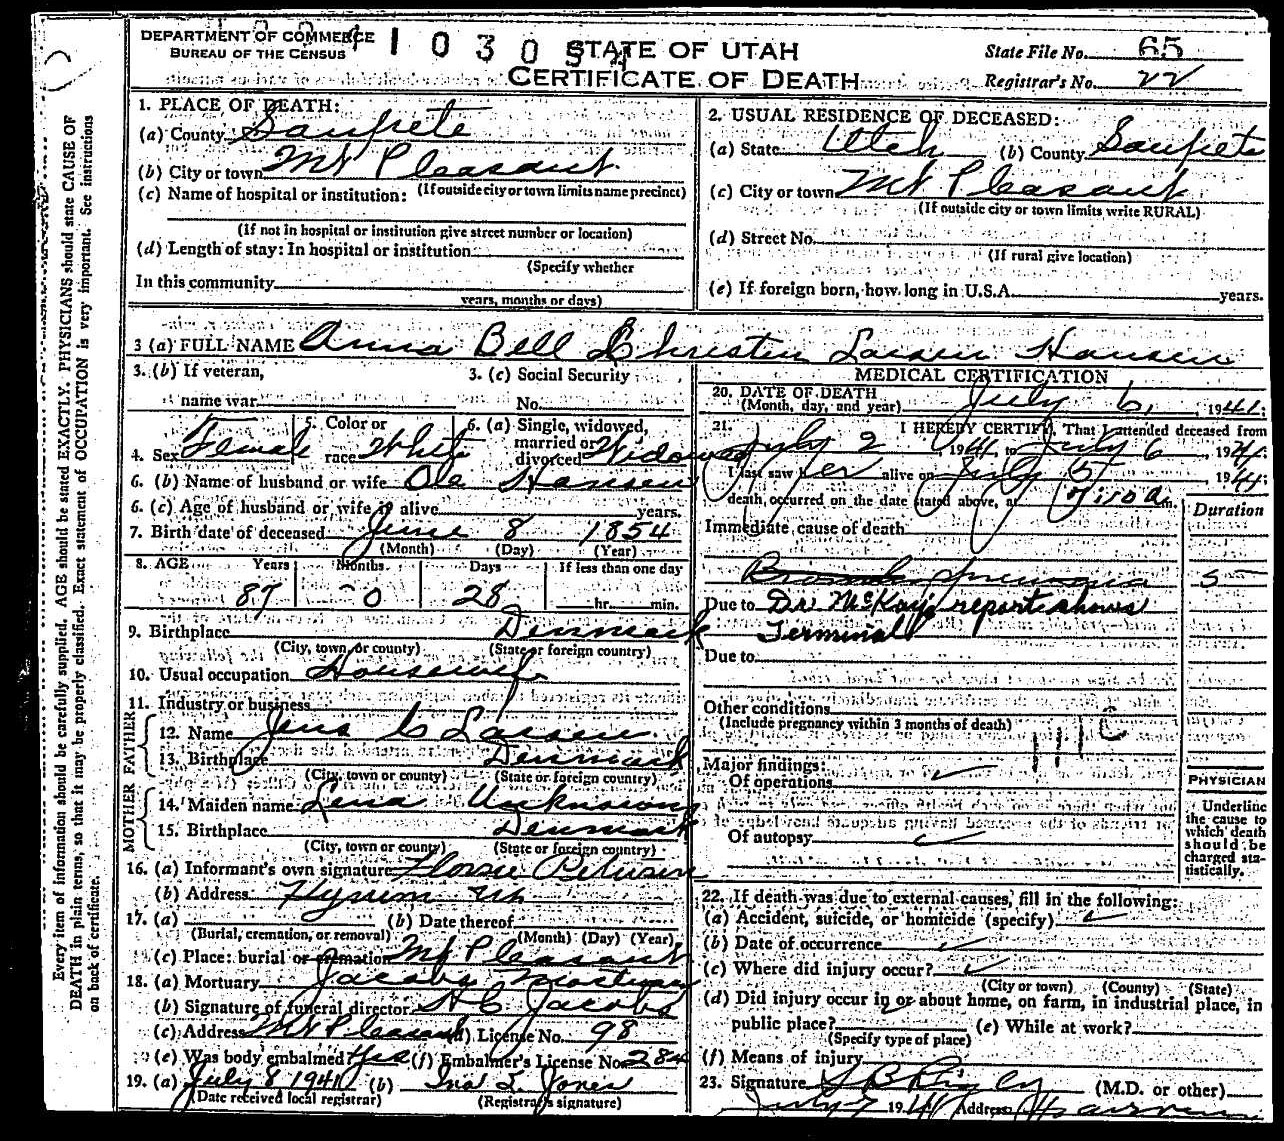 DEPARTMENT OF COMMERCE
BUREAU OF THE CENSUS
STATE OF UTAH
CERTIFICATE OF DEATH
State File No. 65
Registrar's No. 22
1. PLACE OF DEATH:
(a) County Sanpete
(b) City or town Mt Pleasant
(If outside city or town limits name precinct)
(c) Name of hospital or institution:
(If not in hospital or institution give street number or location)
(d) Length of stay: In hospital or institution
(Specify whether
In this community
years, months or days)
2. USUAL RESIDENCE OF DECEASED:
(a) State Utah (b) County Sanpete
(c) City or town Mt Pleasant
(If outside city or town limits write RURAL)
(d) Street No.
(If rural give location)
(e) If foreign born, how long in U.S.A. years.
3 (a) FULL NAME Anna Bell Christen Larsen Hansen
3. (b) If veteran,
name war
3. (c) Social Security
No.
4. Sex Female
5. Color or
race White
6. (a) Single, widowed,
married or
divorced Widowed
6. (b) Name of husband or wife Ole Hansen
6. (c) Age of husband or wife if alive years.
7. Birth date of deceased June 8 1854
(Month) (Day) (Year)
8. AGE Years Months Days If less than one day
87 0 28 hr. min.
9. Birthplace Denmark
(City, town, or county) (State or foreign country)
10. Usual occupation Housewife
11. Industry or business
FATHER
12. Name Jens C Larsen
13. Birthplace Denmark
(City, town or county) (State or foreign country)
MOTHER
14. Maiden name Lena Unknown
15. Birthplace Denmark
(City, town or county) (State or foreign country)
16. (a) Informant's own signature Petersen
(b) Address Hyrum Ut
17. (a) (b) Date thereof
(Burial, cremation, or removal) (Month) (Day) (Year)
(c) Place: burial or cremation Mt Pleasant
18. (a) Mortuary Jacobs Mortuary
(b) Signature of funeral director H C Jacobs
(c) Address Mt Pleasant (d) License No. 98
(e) Was body embalmed? Yes (f) Embalmer's License No. 284
19. (a) July 8 1941 (b) Jones
(Date received local registrar) (Registrar's signature)
MEDICAL CERTIFICATION
20. DATE OF DEATH
(Month, day, and year) July 6, 1941;
21. I HEREBY CERTIFY, That I attended deceased from
July 2, 1941, to July 6, 1941;
I last saw her alive on July 5, 1941;
death occurred on the date stated above, at m.
Duration
Immediate cause of death
pneumonia 5
Due to Dr McKay's report shows
Terminal
Due to
Other conditions
(Include pregnancy within 3 months of death)
Major findings:
Of operations
Of autopsy
PHYSICIAN
Underline
the cause to
which death
should be
charged sta-
tistically.
22. If death was due to external causes, fill in the following:
(a) Accident, suicide, or homicide (specify)
(b) Date of occurrence
(c) Where did injury occur?
(City or town) (County) (State)
(d) Did injury occur in or about home, on farm, in industrial place, in
public place? (e) While at work?
(Specify type of place)
(f) Means of injury
23. Signature (M.D. or other)
July 7 1941 Address
Every item of information should be carefully supplied. AGE should be stated EXACTLY. PHYSICIANS should state CAUSE OF
DEATH in plain terms, so that it may be properly classified. Exact statement of OCCUPATION is very important. See instructions
on back of certificate.